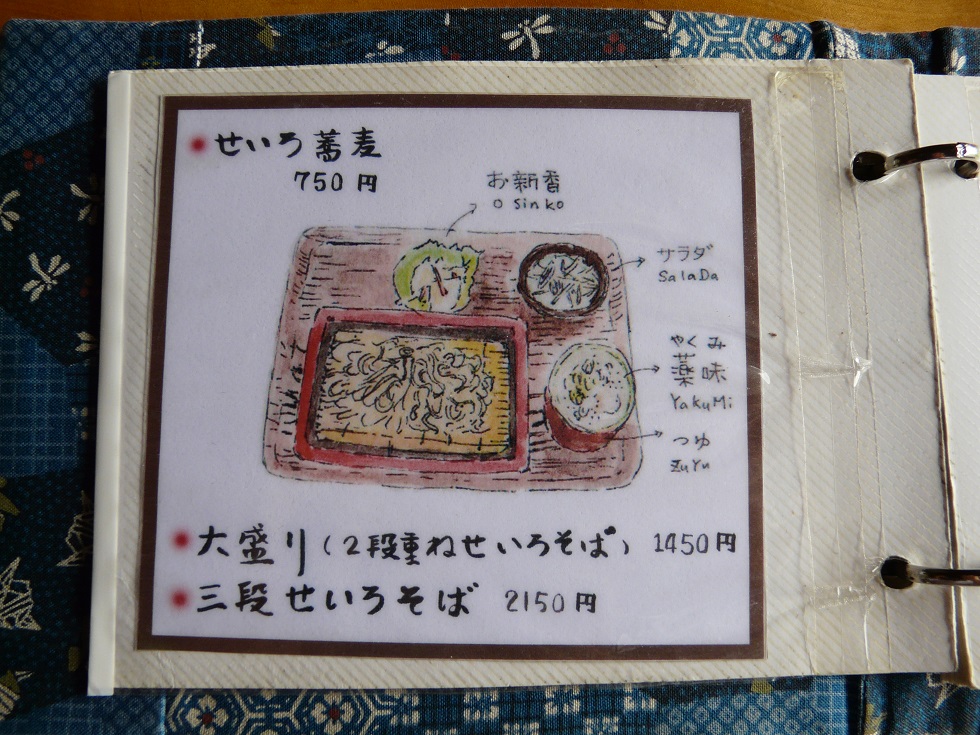 せいろ蕎麦
750円
お新香
o sinko
サラダ
SalaDa
やくみ
薬味
YakuMi
つゆ
ZuYu
大盛り(2段重ねせいろそば) 1450円
三段せいろそば 2150円